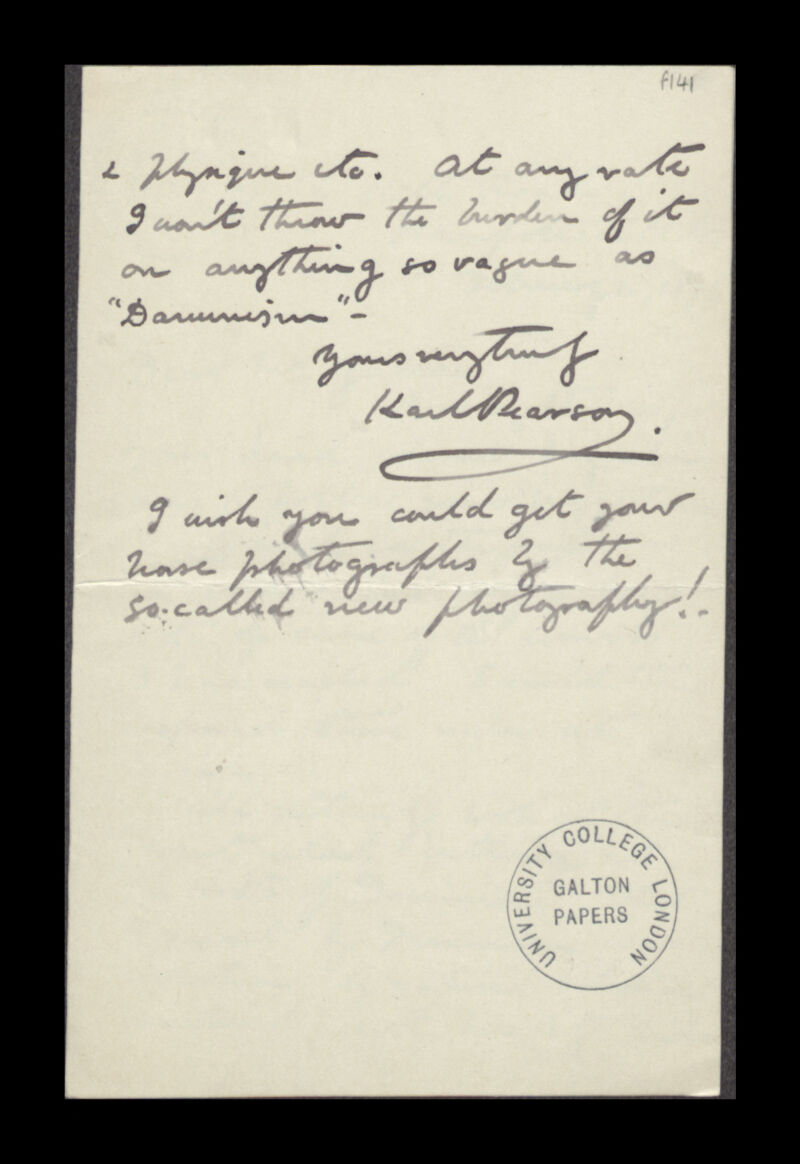 f141
& physique etc. At any rate
I won't throw the burden of it
on anything so vague as
"Darwinism" -
Yours very truly
Karl Pearson.
I wish you could get your
horse photographs by the
so-called new photography! -
UNIVERSITY COLLEGE LONDON
GALTON
PAPERS